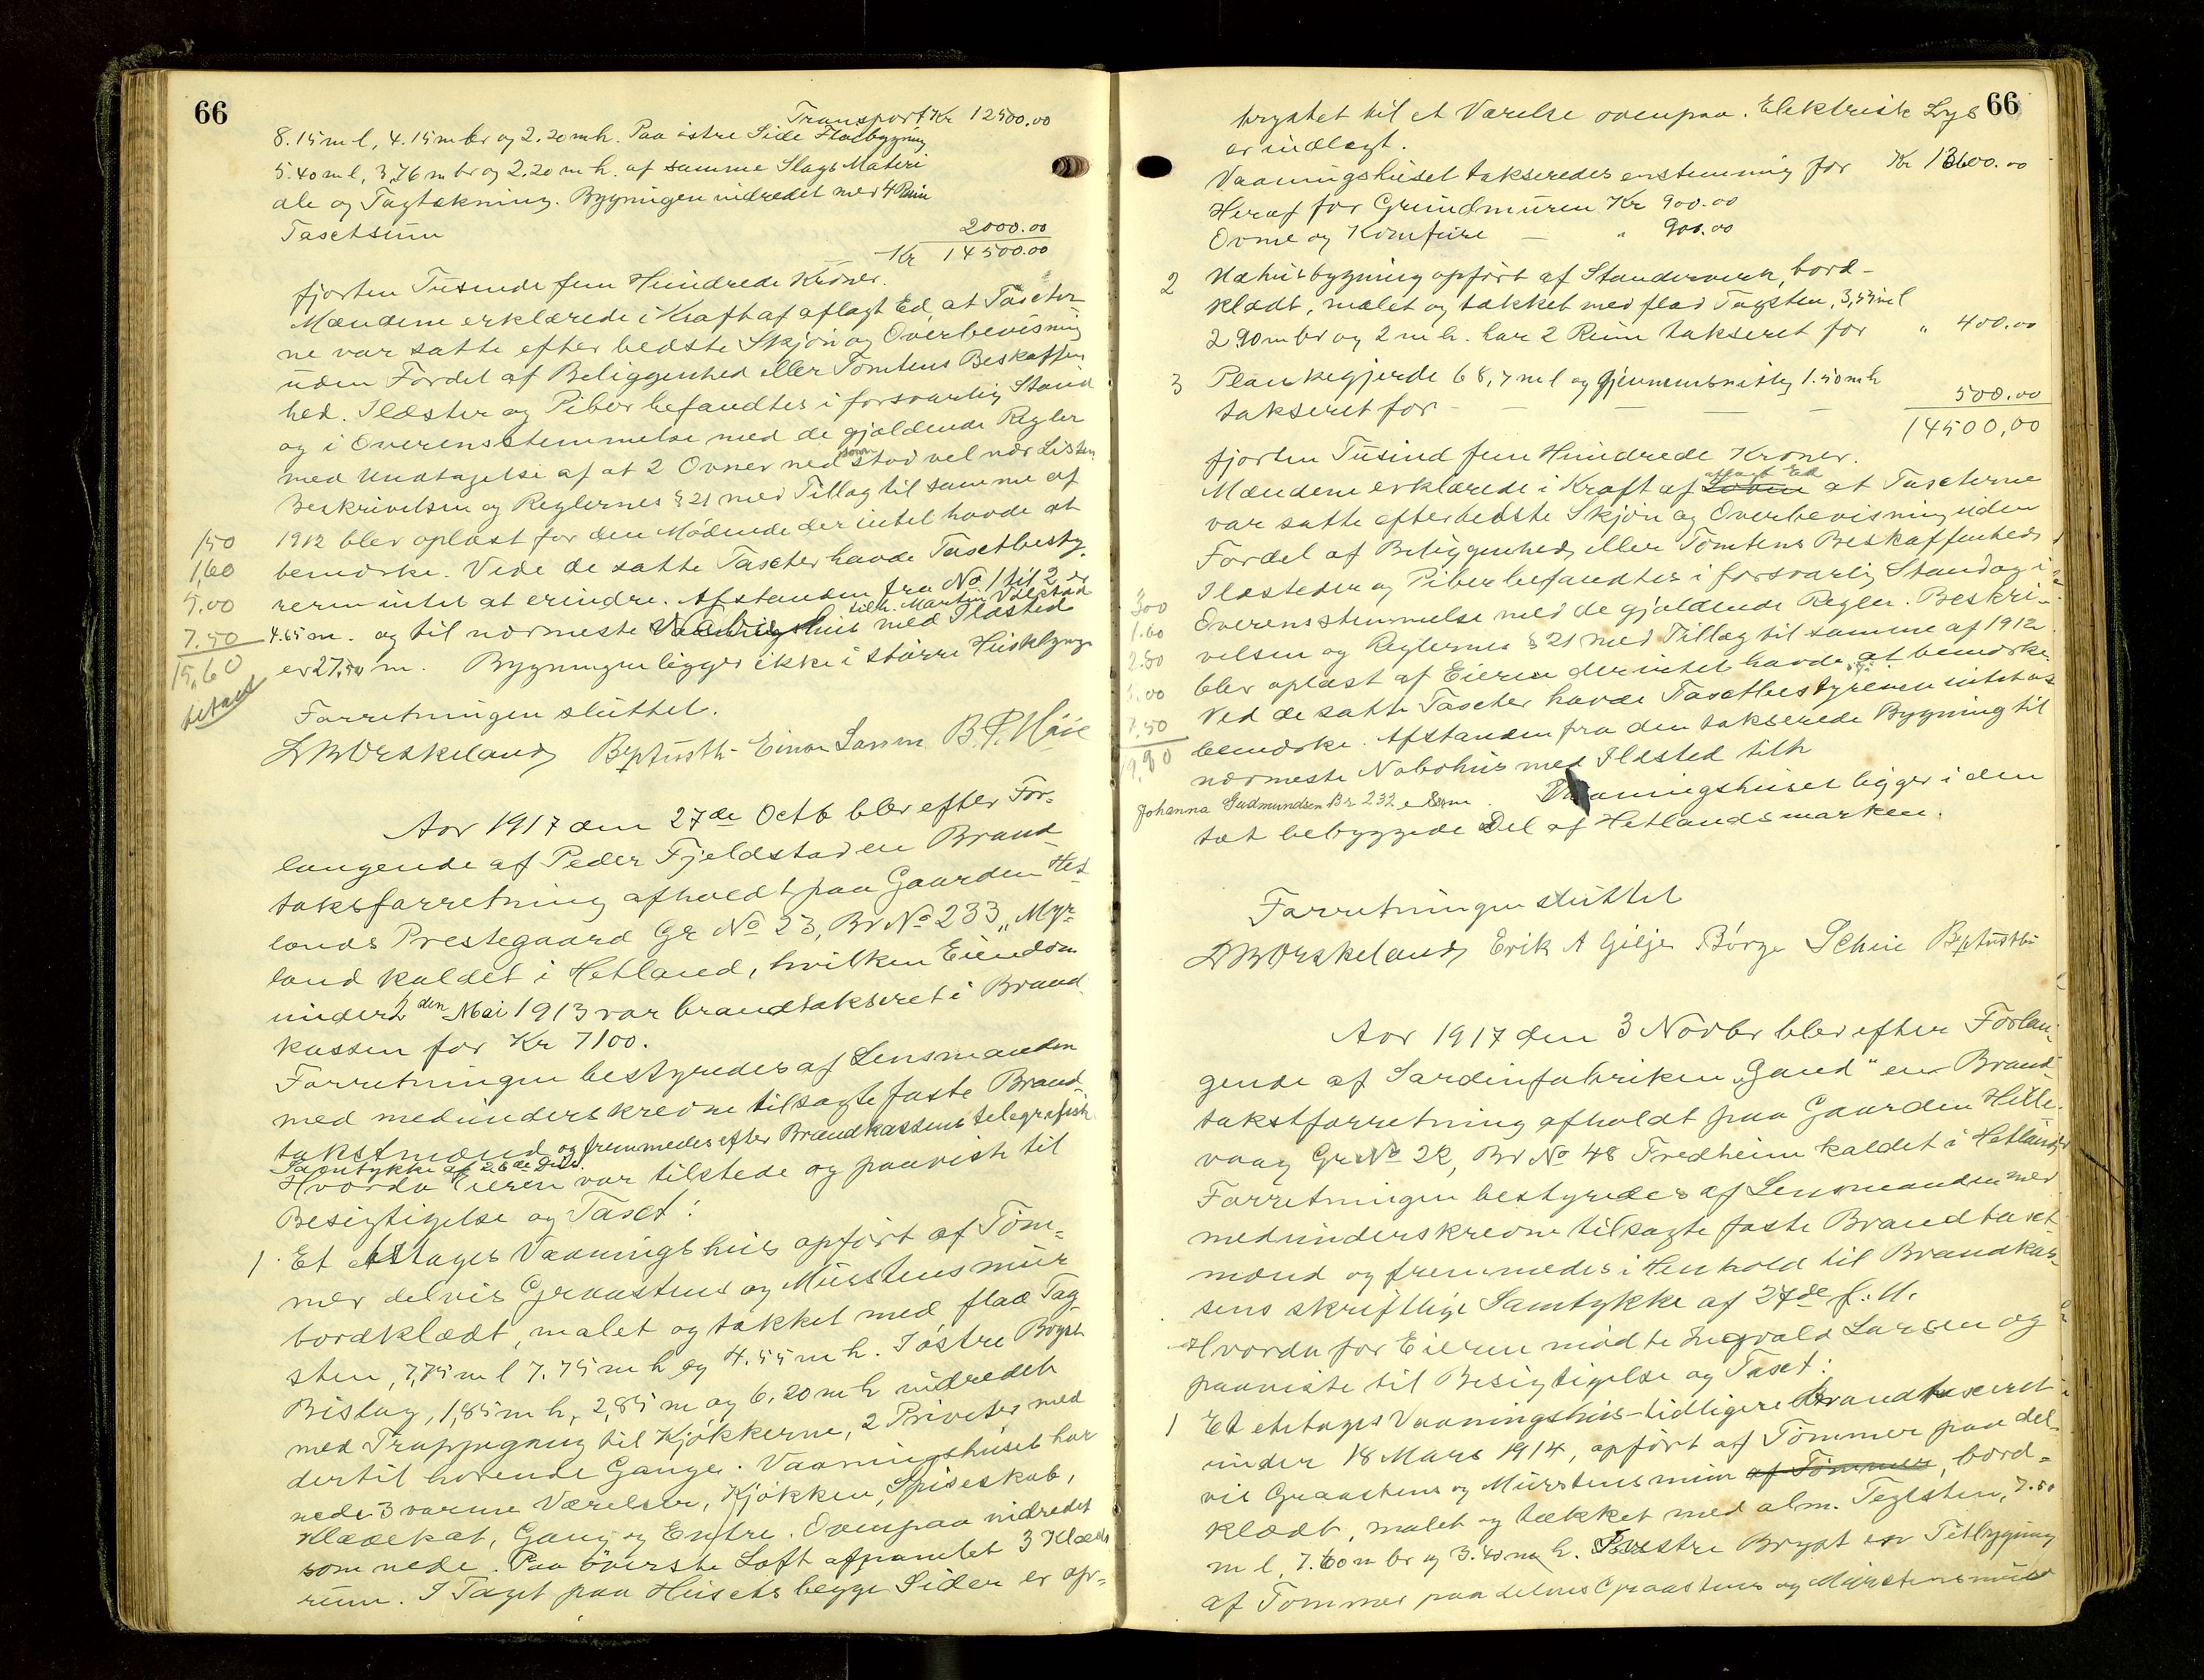 66
Transport Kr 12500.00
8.15 m l, 4.15 m br og 2.20 m h. Paa østre Side Fløibygning
5.40 m l, 3,76 m br og 2.20 m h. af samme Slags Materi
ale og Tagtækning. Bygningen indredet med 4 Rum
2000.00
Taxtsum
Kr 14500.00
fjorten Tusende fem Hundrede Kroner.
Mændene erklærede i Kraft af aflagt Ed, at Taxter
ne var satte efter bedste Skjøn og Overbevisning
uden Fordel af Beliggenhed eller Tomtens Beskaffen
hed. Ildsteder og Piber befandtes i forsvarlig Stand
og i Overensstemmelse med de gjældende Regler
med Undtagelse af at 2 Ovner ned stod vel nær Listen.
Beskrivelsen og Reglernes § 21 med Tillæg til samme af
1912 blev oplæst for den Mødende der intet havde at
bemærke. Vide de satte Taxter havde Taxtbesty
reren intet at erindre. Afstanden fra No 1 til 2 er
tilh. Martin Vdlstad
4.65 m. og til nærmeste Vaaningshus med Ildsted
er 27,50 m. Bygningen ligger ikke i større Husklynge
1,50
1,60
5.00
7.50
15,60
betalt
Forretningen sluttet.
L M Orskeland Bptusth- Einar Larsen B. P. Høie
Aar 1917 den 27de Octb blev efter For-
langende af Peder Fjeldstad en Brand-
taksforretning afholdt paa Gaarden Het
lands Prestegaard Gr No 23, Br No 233 „Myr-
land kaldet i Hetland, hvilken Eiendom
under 2den Mai 1913 var brandtakseret i Brand
kassen for Kr 7100.
Forretningen bestyredes af Lensmanden
med medunderskrevne tilsagte faste Brand-
takstmænd og fremmedes efter Brandkassens telegrafiske
Samtykke af 26de ds.
Hvorda Eieren var tilstede og paaviste til
Besigtigelse og Taxt:
1 Et etetages Vaaningshus opført af Tøm-
mer delvis Graastens og Murstensmur
bordklædt, malet og tækket med flad Tag-
sten, 7,75 m l 7.75 m h og 4.55 m h. I østre Brypt
Bislag, 1,85 m h, 2,85 m og 6,20 m h indredet
med Trappegang til Kjøkkerne, 2 Priveter med
dertil hørende Gange. Vaaningshuset har
nede 3 varme Værelser, Kjøkken, Spiseskab,
Klædekot, Gang og Entre. Ovenpaa indredet
som nede. Paa øverste Loft afpanelet 3 Klæde
rum. I Taget paa Husets begge Sider er op-
66
brygtet til et Værelse ovenpaa. Elektrisk Lys
er indlagt.
Vaaningshuset takseredes enstemmig for Kr 13600.00
Heraf for Grundmuren Kr 900.00
Ovne og Komfure — " 900.00
2 Udhusbygning opført af Standerverk, bord-
klædt, malet og tækket med flad Tagsten, 3,55 m l
2.90 m br og 2 m h. har 2 Rum takseret for " 400.00
3 Plankegjerde 68,7 m l og gjennemsnitlig 1.50 m h
takseret for — — — — — 500.00
14500,00
fjorten Tusind fem Hundrede Kroner.
Mændene erklærede i Kraft af Loven aflagt Ed at Taxterne
var satte efter bedste Skjøn og Overbevisning uden
Fordel af Beliggenhed eller Tomtens Beskaffenhed,
Ildsteder og Piber befandtes i forsvarlig Stand og i
Overensstemmelse med de gjældende Regler. Beskri-
velsen og Reglernes § 21 med Tillæg til samme af 1912
blev oplæst af Eieren der intet havde at bemærke.
Ved de satte Taxter havde Taxtbestyreren intet at
bemærke. Afstanden fra den takserede Bygning til
nærmeste Nabohus med Ildsted tilh
Johanna Gudmundsen Br 232 e 8 m. Vaaningshuset ligger i den
tæt bebyggede Del af Hetlandsmarken.
3,00
1.60
2.80
5.00
7,50
19.90
Forretningen sluttet
L M Orskeland Erik A Gilje Børge Schie Bptusth
Aar 1917 den 3 Novbr blev efter Forlan-
gende af Sardinfabriken „Gand" en Brand
takstforretning afholdt paa Gaarden Hille-
vaag Gr No 22, Br No 48 Fredheim kaldet i Hetland
Forretningen bestyredes af Lensmanden med
medunderskrevne tilsagte faste Brandtaxt
mænd og fremmedes i Henhold til Brandkas-
sens skriftlige Samtykke af 27de f. M.
Hvorda for Eieren mødte Ingvald Larsen og
paaviste til Besigtigelse og Taxt:
1 Et etetages Vaaningshus - tidligere brandtaxeret
under 18 Mars 1914, opført af Tømmer paa del-
vis Graastens og Murstensmur af Tømmer, bord-
klædt, malet og tækket med alm. Teglsten, 7.50
m l, 7.60 m br og 3.40 m h. I vestre Brypt er Tilbygning
af Tømmer paa delvis Graastens og Murstensmur